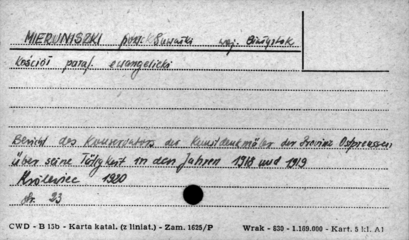 MIERUNISZKI pow. Suwałki woj. Białystok
Kościół paraf. ewangelicki
Bericht des Konservators der Kunstdenkmäler der Provinz Ostpreussen
über seine Tätigkeit in den Jahren 1918 und 1919
Królewiec 1920
str. 23
CWD - B 15b - Karta katal. (z liniat.) - Zam. 1625/P Wrak - 830 - 1.169.000 - Kart. 5 kl. A1